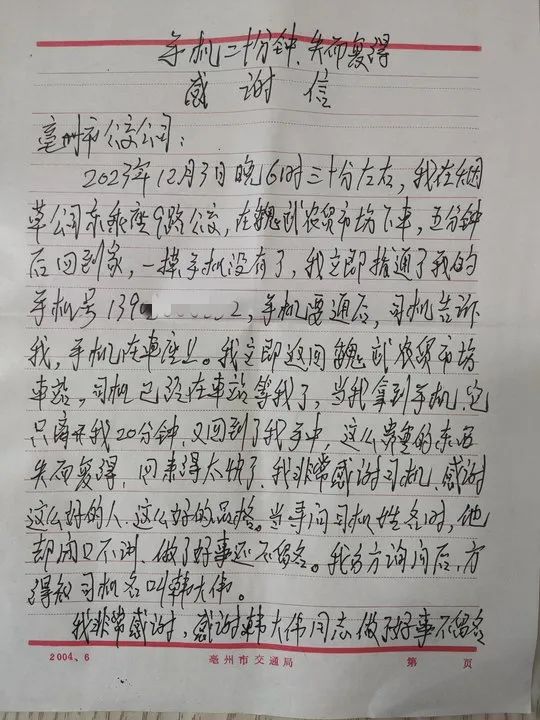 手机二十分钟、失而复得
感谢信
亳州市公交公司：
2023年12月3日晚6时三十分左右，我在烟
草公司东乘座9路公交，在魏武农贸市场下车，五分钟
后回到家，一摸手机没有了，我立即拨通了我的
手机号139 2，手机要通后，司机告诉
我，手机在車座上。我立即返回魏武农贸市场
車站，司机已经在車站等我了，当我拿到手机，它
只离开我20分钟，又回到了我手中，这么贵重的东西
失而复得，回来得太快了，我非常感谢司机，感谢
这么好的人、这么好的品格。当事问司机姓名时，他
却闭口不讲、做了好事还不留名。我多方询问后，方
得知司机名叫韩大伟。
我非常感谢，感谢韩大伟同志做了好事不留名
2004、6 亳州市交通局 第 页